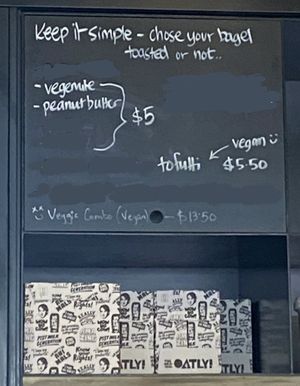 Keep it simple - chose your bagel
toasted or not..
- vegemite
- peanut butter
$5
vegan
tofutti $5.50
Veggie Combo (Vegan) - $13.50
OATLY!
TLY!
TLY!